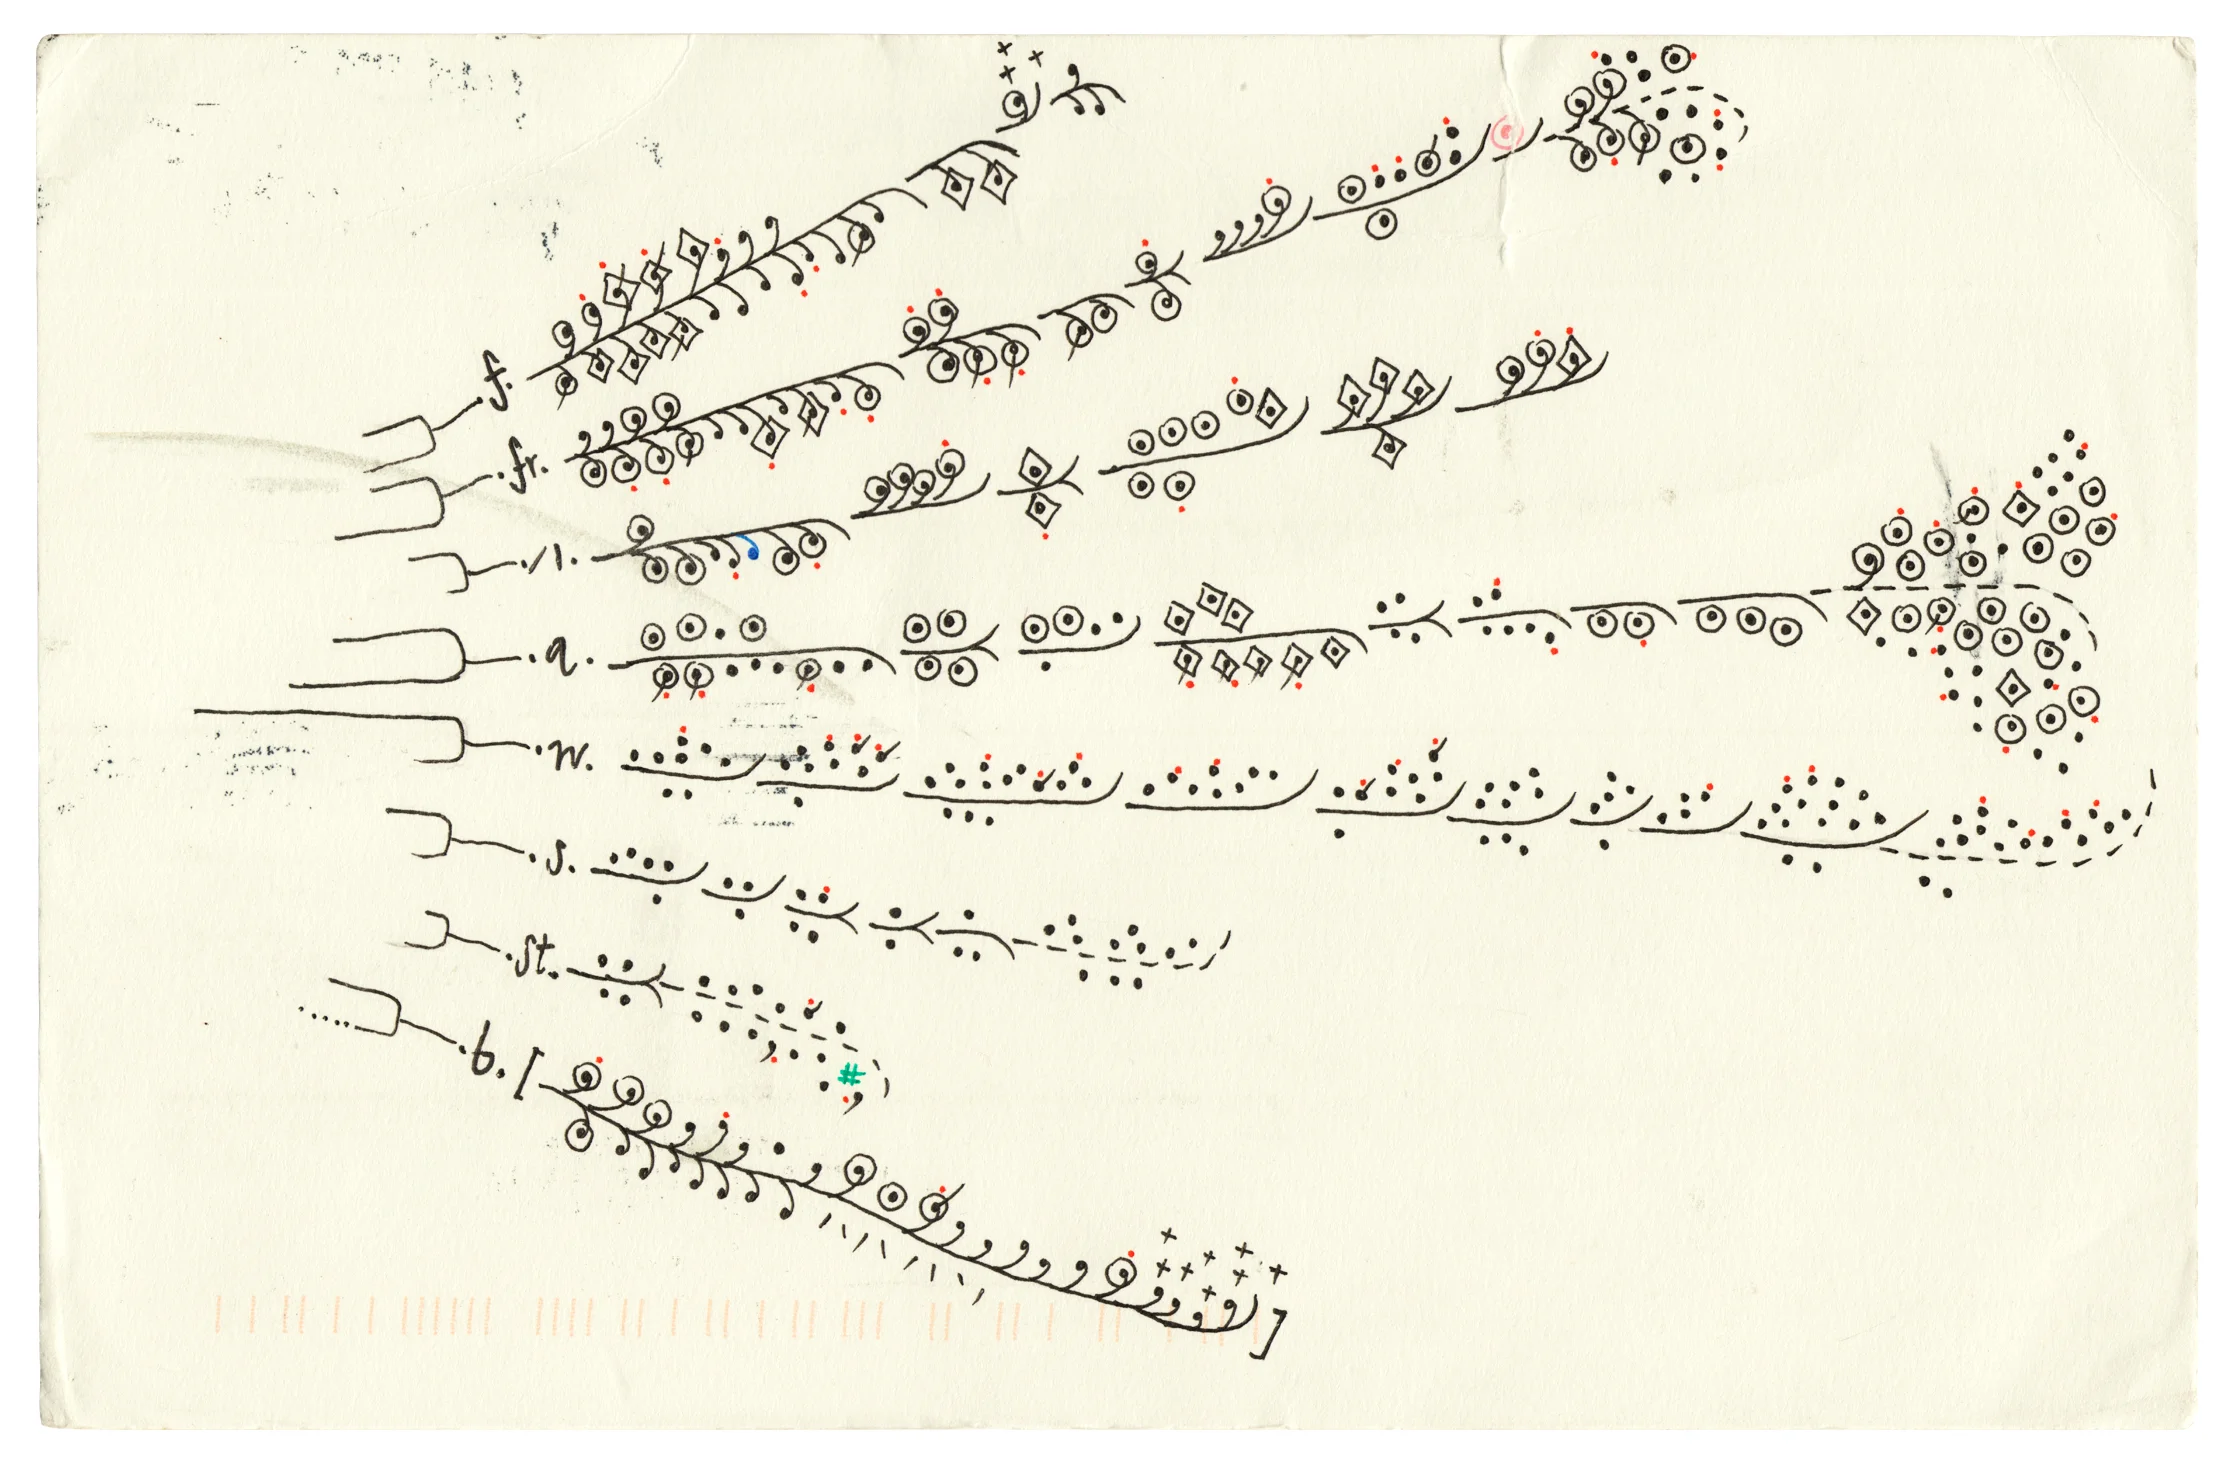 f.
.fr.
.n.
.a.
.w.
.s.
.st.
.b. [
#
]